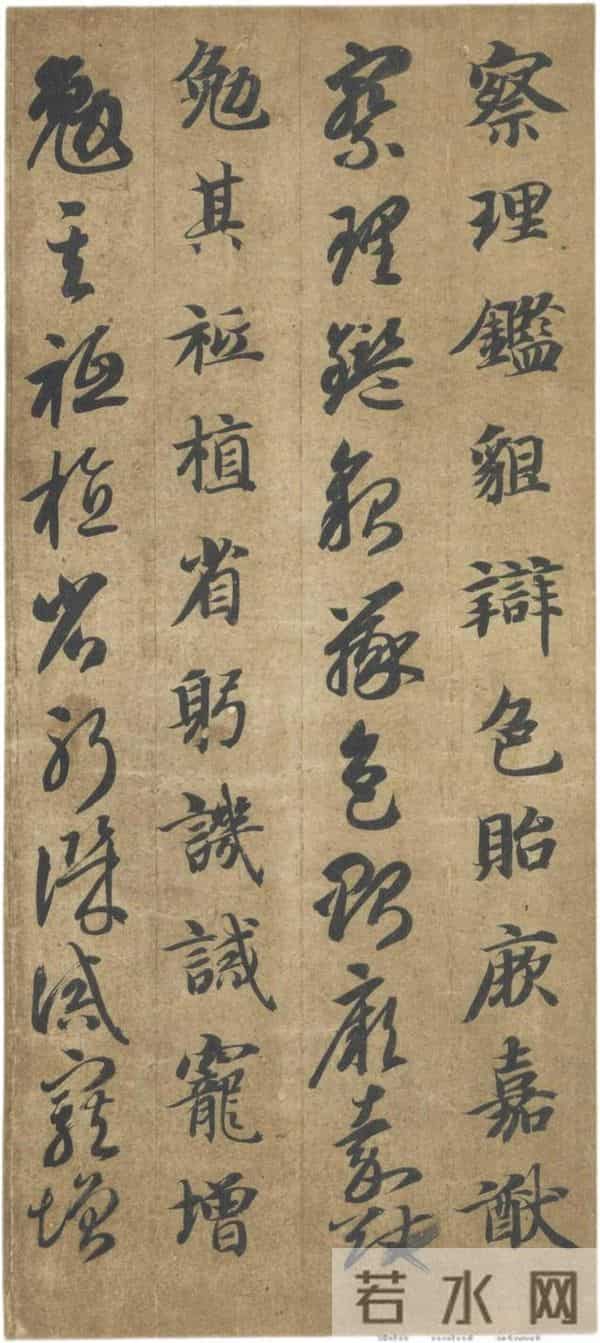 察理鑑貌辯色貽厥嘉猷
察理鑑貌辯色貽厥嘉猷
勉其祗植省躬譏誡寵增
勉其祗植省躬譏誡寵增
若水网